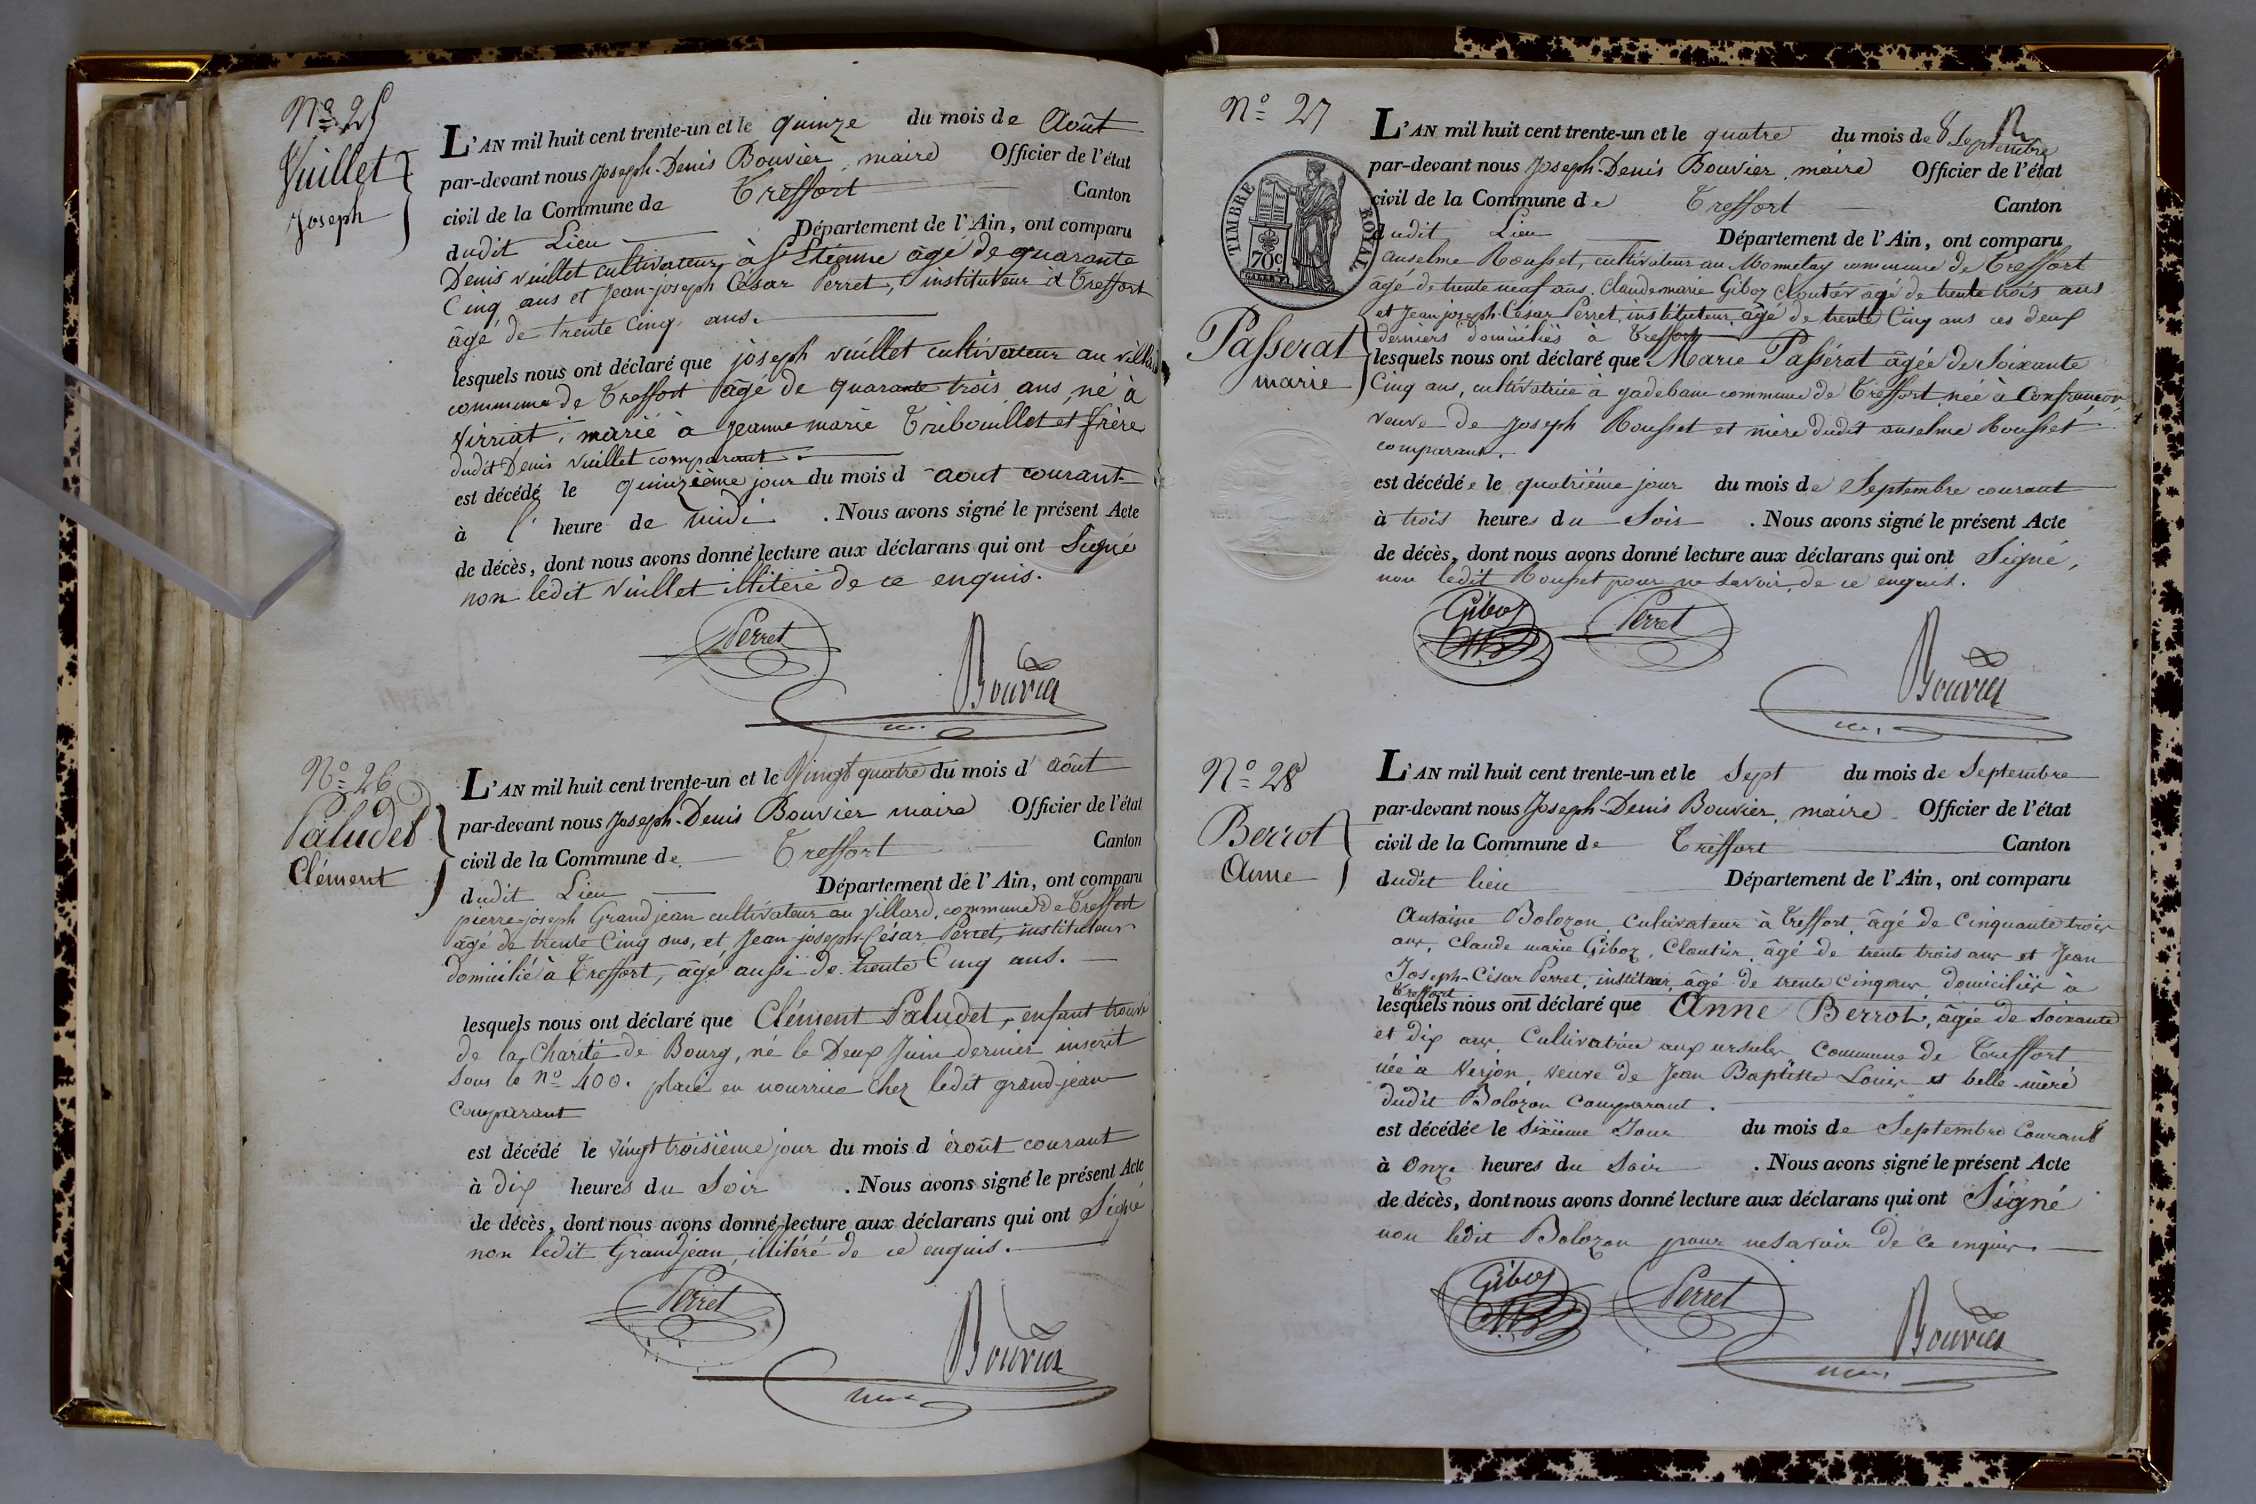 N° 25
Vuillet
Joseph
L'AN mil huit cent trente-un et le quinze du mois de Août
par-devant nous Joseph-Denis Bouvier, maire Officier de l'état
civil de la Commune de Treffort Canton
dudit Lieu Département de l'Ain, ont comparu
Denis Vuillet cultivateur, à St Etienne âgé de quarante
Cinq ans et Jean-joseph César Perret, instituteur à Treffort
âgé de trente Cinq ans.
lesquels nous ont déclaré que joseph vuillet cultivateur au
commune de Treffort âgé de quarante trois ans, né à
Virriat, marié à jeanne marie Tribouillet et frère
dudit Denis vuillet comparant.
est décédé le quinzième jour du mois d aout courant
à l' heure de midi . Nous avons signé le présent Acte
de décès, dont nous avons donné lecture aux déclarans qui ont Signé
non ledit Vuillet illitéré de ce enquis.
Perret
Bouvier
N° 26
Paludet
Clément
L'AN mil huit cent trente-un et le Vingt quatre du mois d' août
par-devant nous Joseph-Denis Bouvier maire Officier de l'état
civil de la Commune de Treffort Canton
dudit Lieu Département de l'Ain, ont comparu
pierre-joseph Grandjean cultivateur au Villard, commune de Treffort
âgé de trente Cinq ans, et Jean-joseph-César Perret, instituteur
domicilié à Treffort, âgé aussi de trente Cinq ans.
lesquels nous ont déclaré que Clément Paludet, enfant trouvé
de la Charité de Bourg, né le Deux Juin dernier inscrit
Sous le n° 400. placé en nourrice chez ledit grand-jean
Comparant
est décédé le vingt troisième jour du mois d août courant
à dix heures du Soir . Nous avons signé le présent Acte
de décès, dont nous avons donné lecture aux déclarans qui ont Signé
non ledit Grandjean illitéré de ce enquis.
Perret
Bouvier
N° 27
TIMBRE ROYAL
70c
Passerat
marie
L'AN mil huit cent trente-un et le quatre du mois de Septembre
par-devant nous Joseph-Denis Bouvier, maire Officier de l'état
civil de la Commune de Treffort Canton
dudit Lieu Département de l'Ain, ont comparu
anselme Rousset, cultivateur au Monnetay commune de Treffort
âgé de trente neuf ans. Claude marie Giboz Cloutier âgé de trente trois ans
et Jean joseph-César Perret, instituteur âgé de trente Cinq ans ces deux
derniers domiciliés à Treffort
lesquels nous ont déclaré que Marie Passérat âgée de Soixante
Cinq ans, cultivatrice à gadebane commune de Treffort née à Confrançon,
veuve de Joseph Rousset et mère dudit anselme Rousset
comparant.
est décédée le quatrième jour du mois de Septembre courant
à trois heures du Soir . Nous avons signé le présent Acte
de décès, dont nous avons donné lecture aux déclarans qui ont Signé,
non ledit Rousset pour ne savoir, de ce enquis.
Giboz
Perret
Bouvier
N° 28
Berrot
Anne
L'AN mil huit cent trente-un et le Sept du mois de Septembre
par-devant nous Joseph-Denis Bouvier, maire Officier de l'état
civil de la Commune de Treffort Canton
dudit lieu Département de l'Ain, ont comparu
Antoine Bolozon, Cultivateur à Treffort, âgé de Cinquante trois
ans, Claude marie Giboz, Cloutier, âgé de trente trois ans et Jean
Joseph-César Perret, instituteur, âgé de trente Cinq ans, domiciliés à
Treffort
lesquels nous ont déclaré que Anne Berrot, âgée de Soixante
et dix ans, Cultivatrice aux ursules Commune de Treffort
née à Verjon, veuve de Jean Baptiste Louis et belle-mère
dudit Bolozon Comparant.
est décédée le Sixième Jour du mois de Septembre Courant
à Onze heures du Soir . Nous avons signé le présent Acte
de décès, dont nous avons donné lecture aux déclarans qui ont Signé
non ledit Bolozon pour ne savoir de ce enquis.
Giboz
Perret
Bouvier